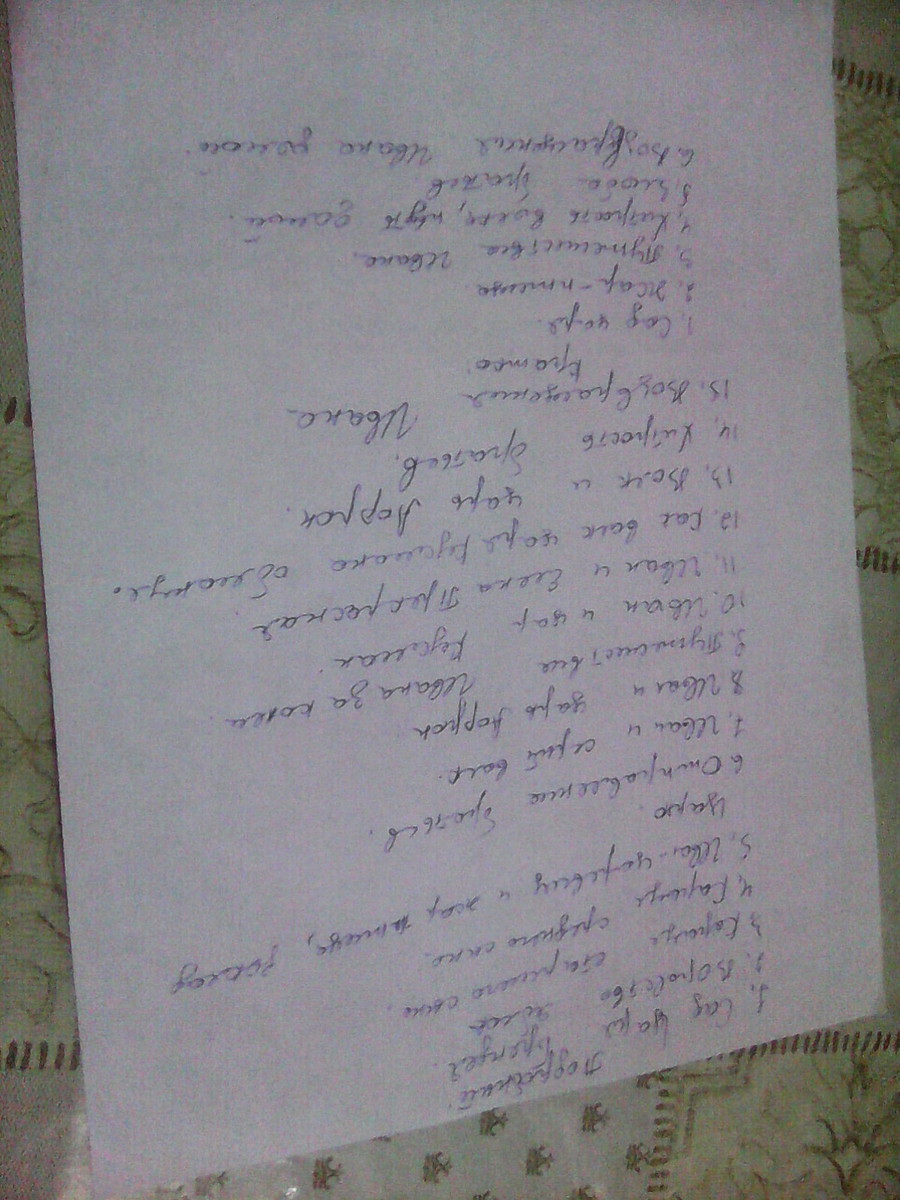 Подробный.
1. Сад царя Брендея.
2. Воровство яблок
3. Караул старшего сына.
4. Караул среднего сына.
5. Иван-царевич и жар птица, доклад
царю
6. Отправление братьев.
7. Иван и серый волк.
8. Иван и царь Афрон
9. Путешествие Ивана за конём.
10. Иван и цар Кусман.
11. Иван и Елена Прекрасная
12. Как волк царя Кусмана обманул.
13. Волк и царь Афрон.
14. Хитрость братьев.
15. Возвращения Ивана
Кратко.
1. Сад царя.
2. Жар-птица.
3. Путешествие Ивана.
4. Хитрость волка, путь домой.
5. Злоба братьев
6. Возвращения Ивана домой.